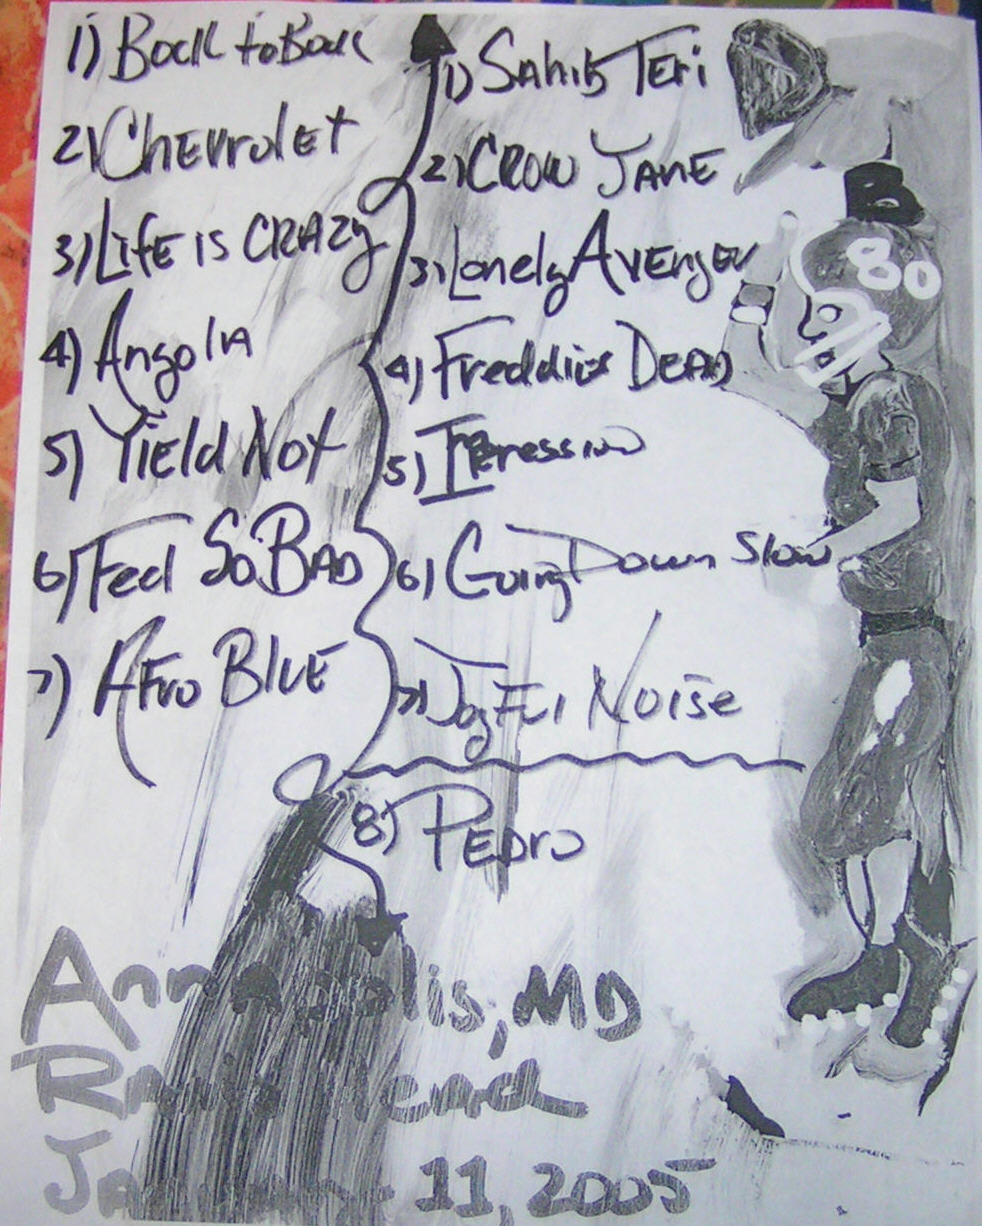 1) Back to Back
2) Chevrolet
3) Life is CRAZY
4) Angola
5) Yield Not
6) Feel So BAD
7) AFro BlUE
1) Sahib Teri
2) CROW JANE
3) Lonely AVEnger
4) Freddies DEAD
5) Repression
6) Going Down Slow
7) JoyFul Noise
8) PEDro
B
80
Annapolis, MD
Rams Head
January 11, 2005